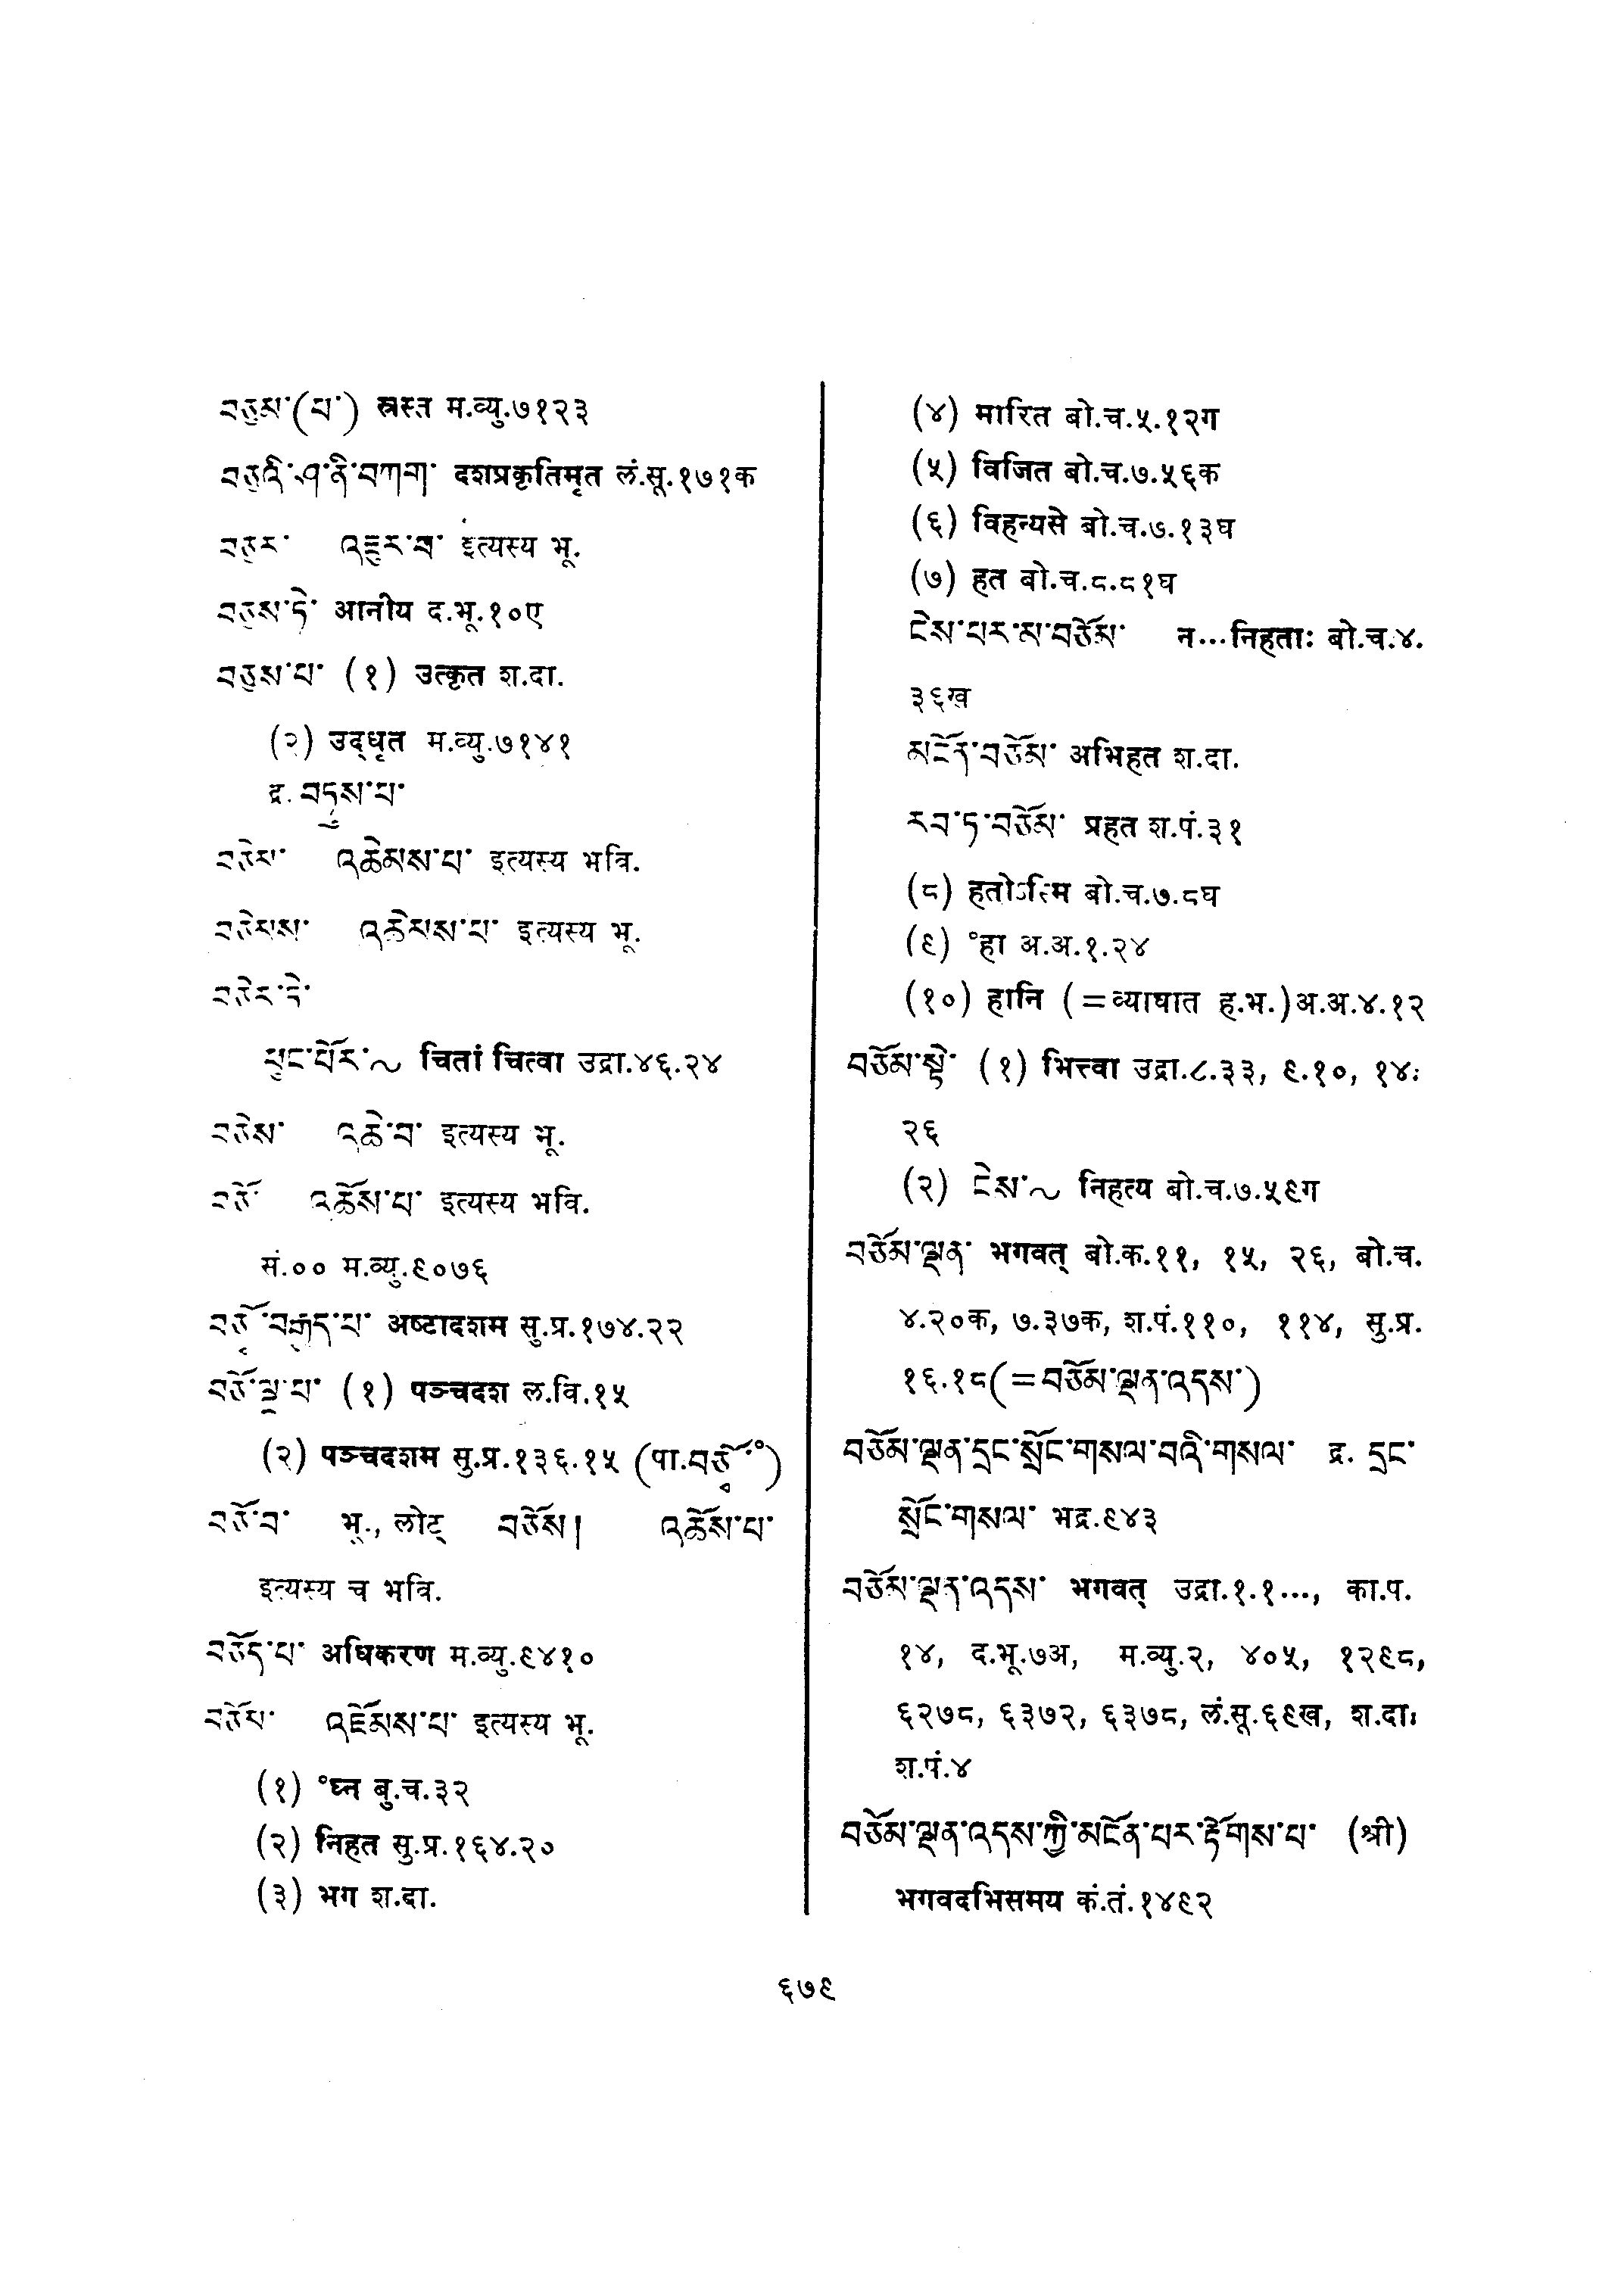 བཅུམ་(པ་) स्रस्त म.व्यु.७१२३
བཅུའི་ཤ་ནི་བཀག་ दशप्रकृतिमृत लं.सू.१७१क
བཅུར་ འཇུར་བ་ इत्यस्य भू.
བཅུས་ཏེ་ आनीय द.भू.१०ए
བཅུས་པ་ (१) उत्कृत श.दा.
(२) उद्धृत म.व्यु.७१४१
द्र. བཏུས་པ་
བཅེམ་ འཆེམས་པ་ इत्यस्य भवि.
བཅེམས་ འཆེམས་པ་ इत्यस्य भू.
བཅེར་ཏེ་
ཕུང་པོར་~ चितां चित्वा उद्रा.४६.२४
བཅེས་ འཆེ་བ་ इत्यस्य भू.
བཅོ་ འཆོས་པ་ इत्यस्य भवि.
सं.०० म.व्यु.९०७६
བཅྭོ་བརྒྱད་པ་ अष्टादशम सु.प्र.१७४.२२
བཅོ་ལྔ་པ་ (१) पञ्चदश ल.वि.१५
(२) पञ्चदशम सु.प्र.१३६.१५ (पा.བཅྭོ་°)
བཅོ་བ་ भू., लोट् བཅོས། འཆོས་པ་
इत्यस्य च भवि.
བཅོད་པ་ अधिकरण म.व्यु.९४१०
བཅོམ་ འཇོམས་པ་ इत्यस्य भू.
(१) °घ्न बु.च.३२
(२) निहत सु.प्र.१६४.२०
(३) भग श.दा.
(४) मारित बो.च.५.१२ग
(५) विजित बो.च.७.५६क
(६) विहन्यसे बो.च.७.१३घ
(७) हत बो.च.८.८१घ
ངེས་པར་མ་བཅོམ་ न...निहताः बो.च.४.
३६ख
མངོན་བཅོམ་ अभिहत श.दा.
རབ་ཏུ་བཅོམ་ प्रहत श.पं.३१
(८) हतोऽस्मि बो.च.७.८घ
(९) °हा अ.अ.१.२४
(१०) हानि (=व्याघात ह.भ.)अ.अ.४.१२
བཅོམ་སྟེ་ (१) भित्त्वा उद्रा.८.३३, ९.१०, १४.
२६
(२) ངེས་~ निहत्य बो.च.७.५९ग
བཅོམ་ལྡན་ भगवत् बो.क.११, १५, २६, बो.च.
४.२०क, ७.३७क, श.पं.११०, ११४, सु.प्र.
१६.१८(=བཅོམ་ལྡན་འདས་)
བཅོམ་ལྡན་དྲང་སྲོང་གསལ་བའི་གསལ་ द्र. དྲང་
སྲོང་གསལ་ भद्र.९४३
བཅོམ་ལྡན་འདས་ भगवत् उद्रा.१.१..., का.प.
१४, द.भू.७अ, म.व्यु.२, ४०५, १२९८,
६२७८, ६३७२, ६३७८, लं.सू.६९ख, श.दा.
श.पं.४
བཅོམ་ལྡན་འདས་ཀྱི་མངོན་པར་རྟོགས་པ་ (श्री)
भगवदभिसमय कं.तं.१४९२
६७९